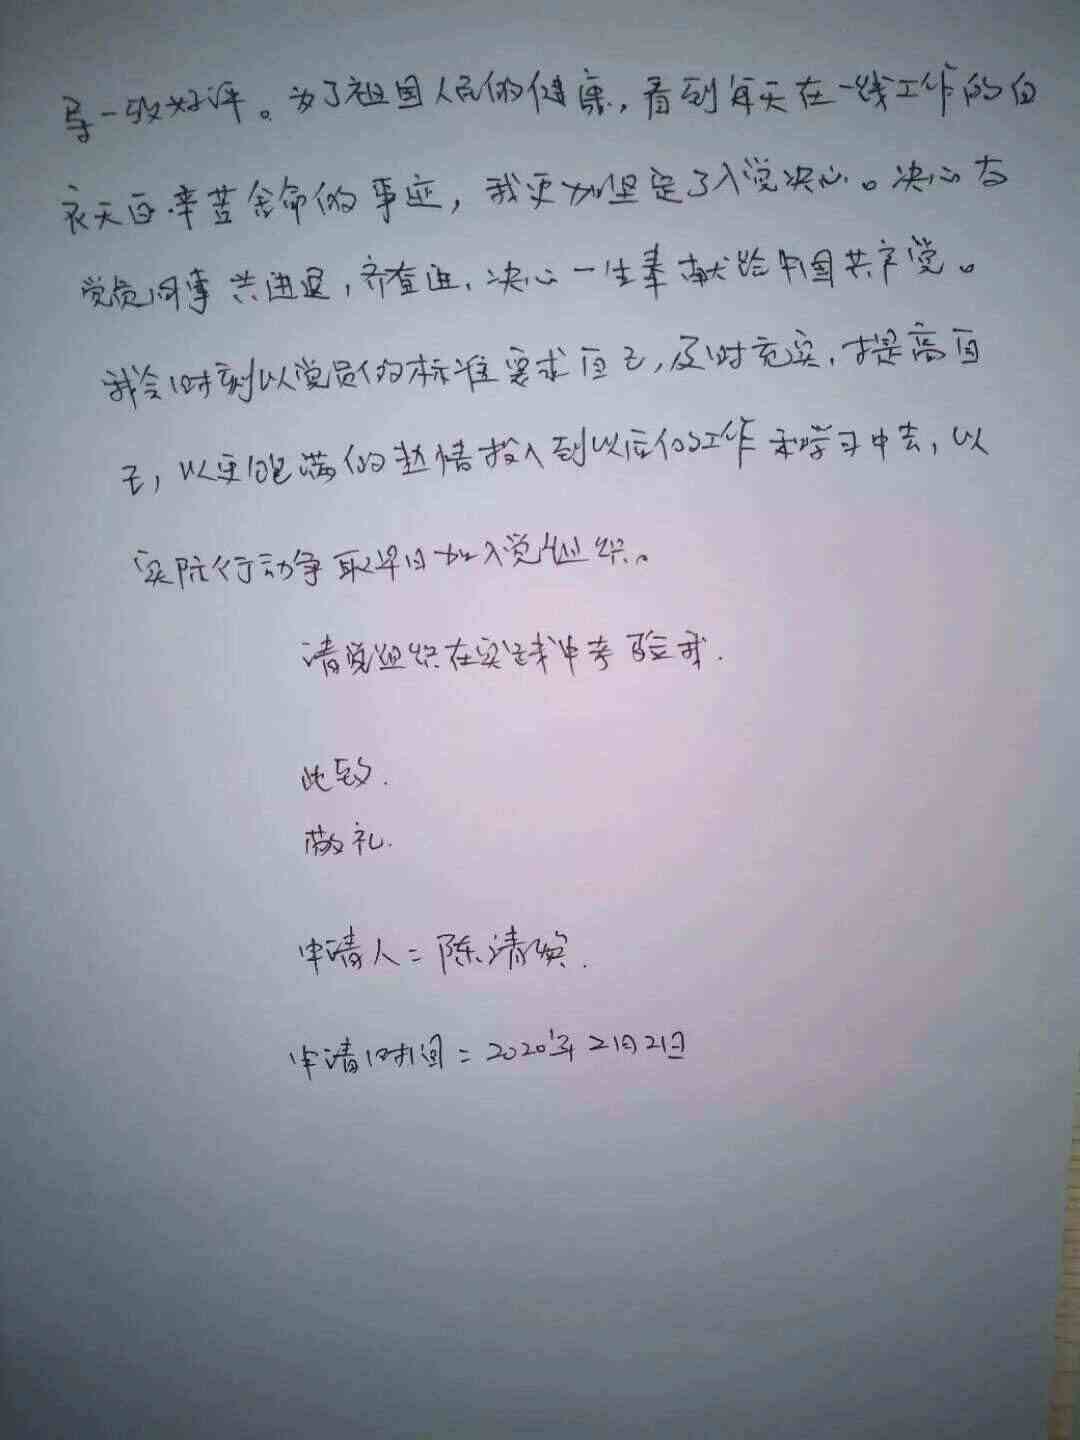 导一致好评。为了祖国人民的健康，看到每天在一线工作的白
衣天使辛苦舍命的事迹，我更加坚定了入党决心。决心与
党员同事共进退，齐奋进，决心一生奉献给中国共产党。
我会时刻以党员的标准要求自己，及时充实，提高自
己，以更饱满的热情投入到以后的工作和学习中去，以
实际行动争取早日加入党组织。
请党组织在实践中考验我.
此致.
敬礼.
申请人：陈清
申请时间：2020年2月21日